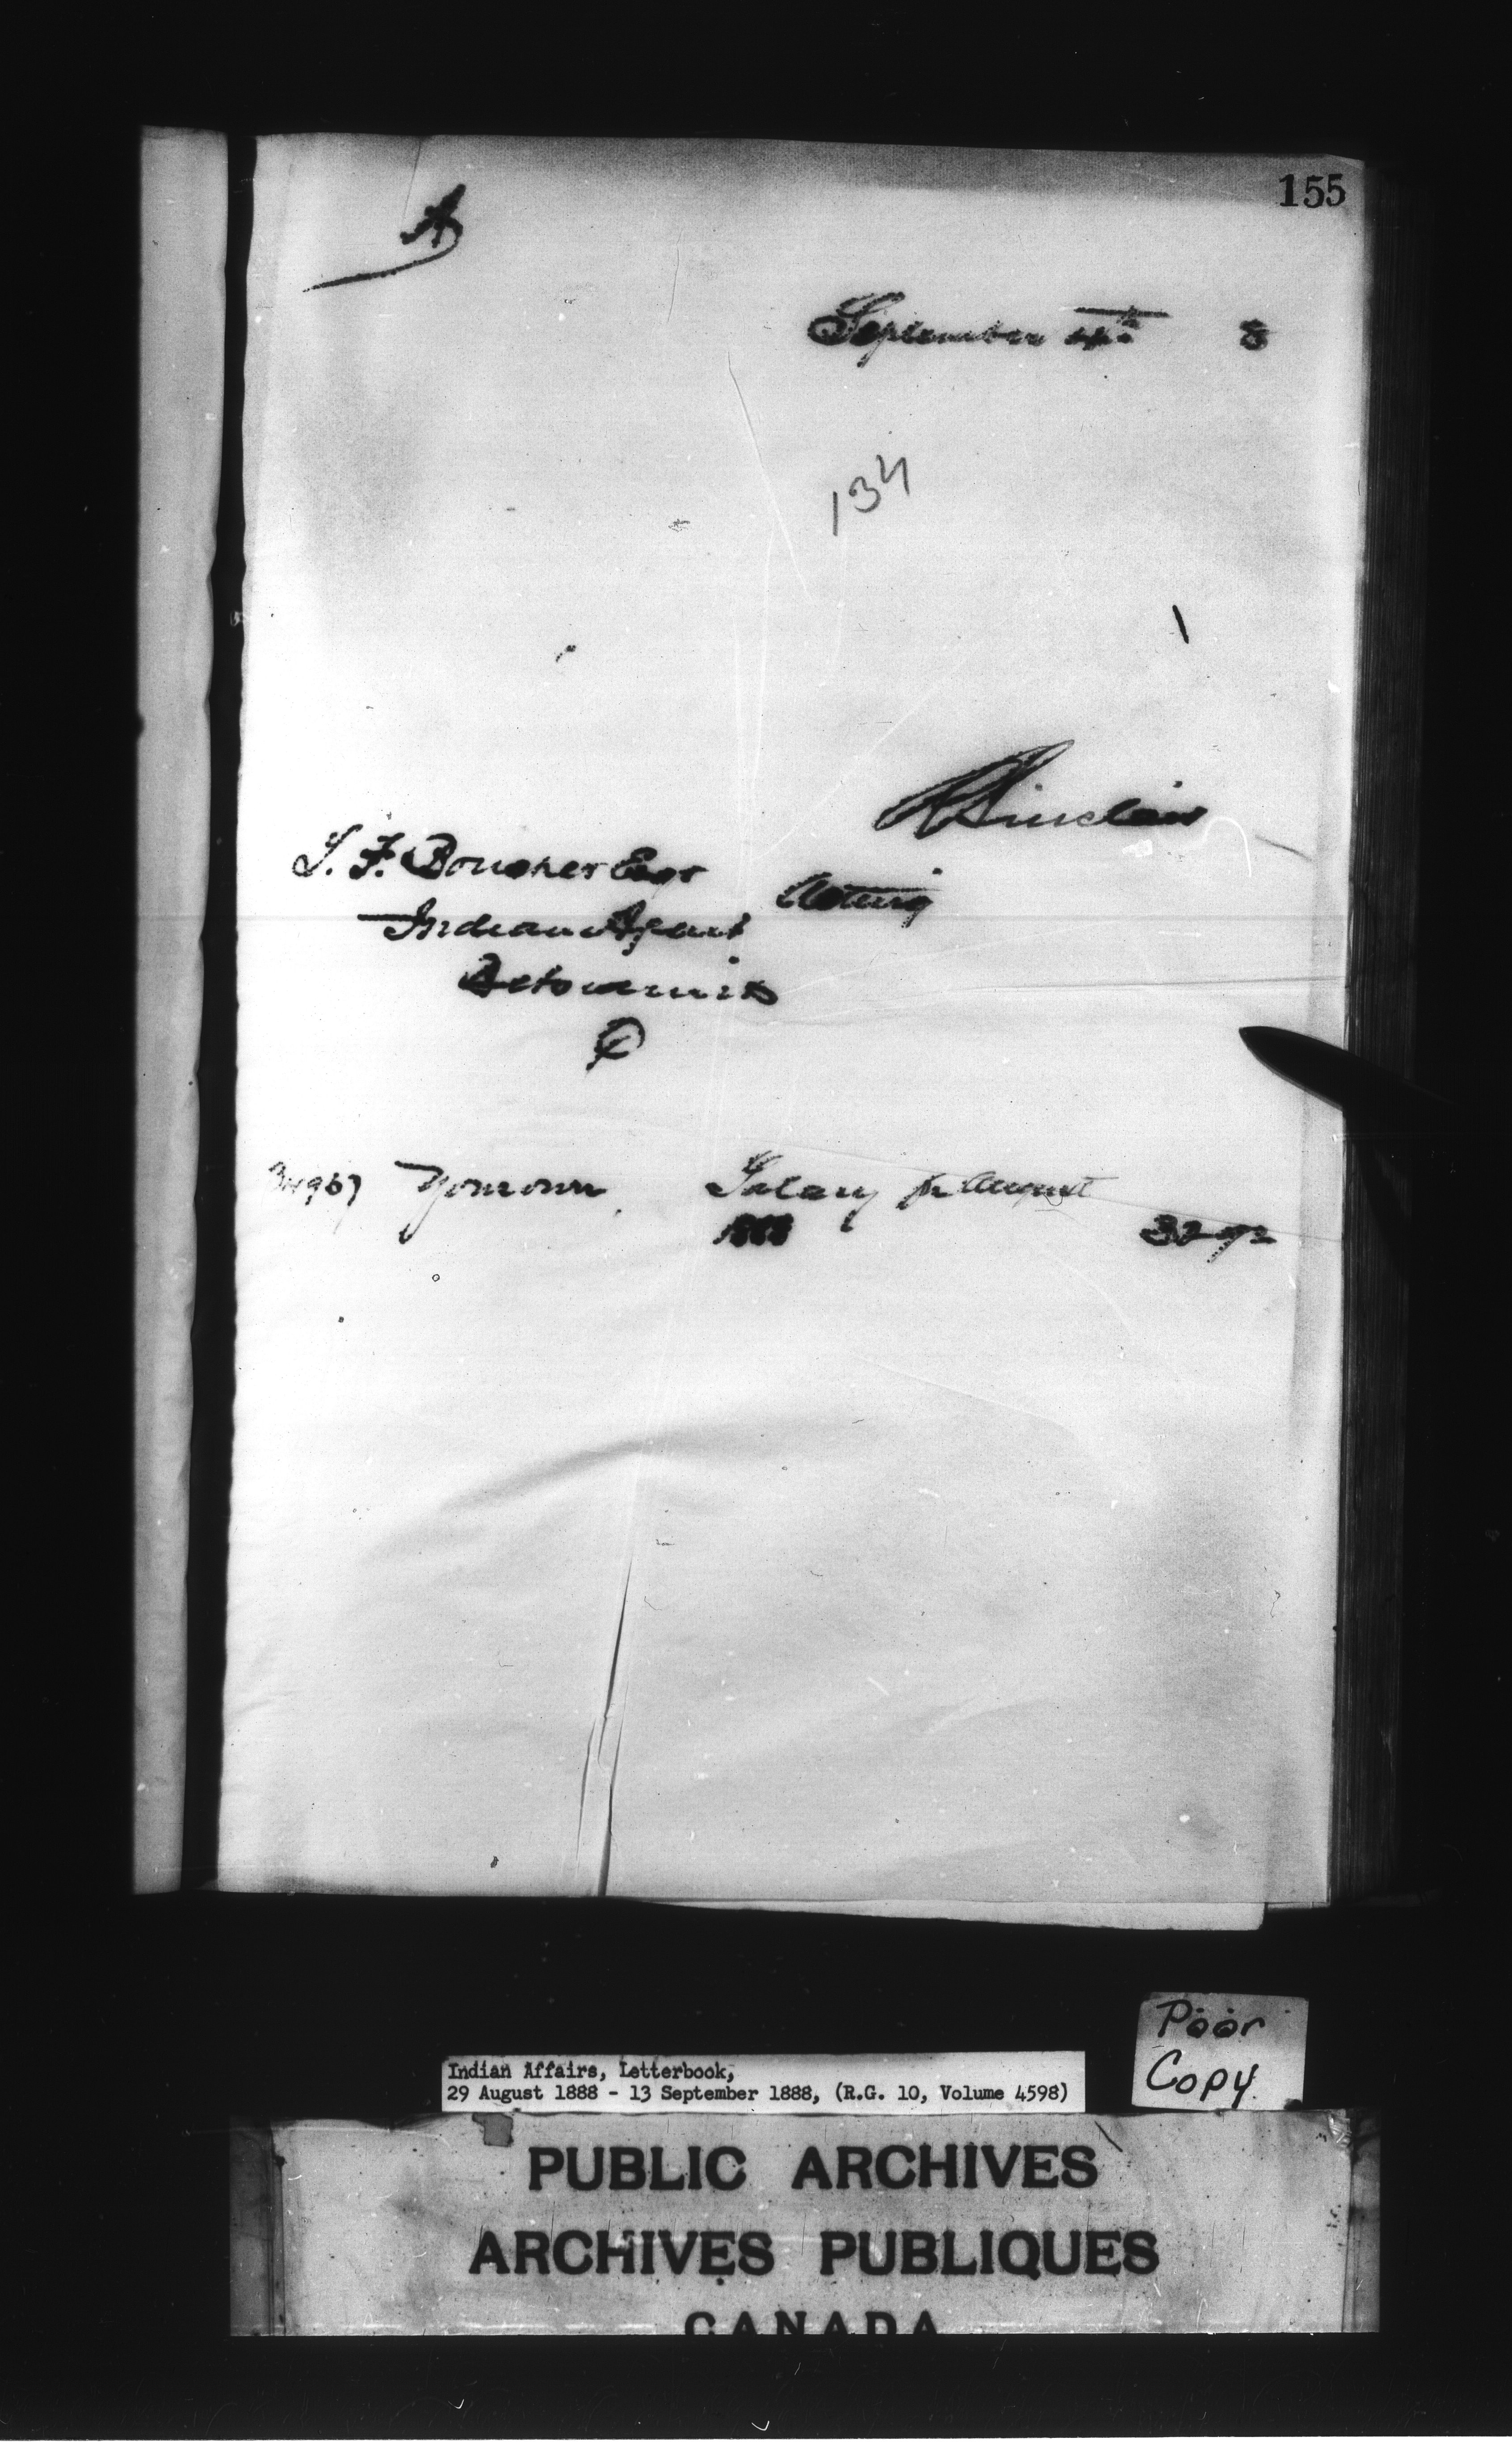 155
A
September 4th 8
134
R Sinclair
L. F. Boucher Esqr
Acting
Indian Agent
Betsiamits
Q
34967 Yourown Salary for August
1888 32 92
Poor
Copy
Indian Affairs, Letterbook,
29 August 1888 - 13 September 1888, (R.G. 10, Volume 4598)
PUBLIC ARCHIVES
ARCHIVES PUBLIQUES
CANADA